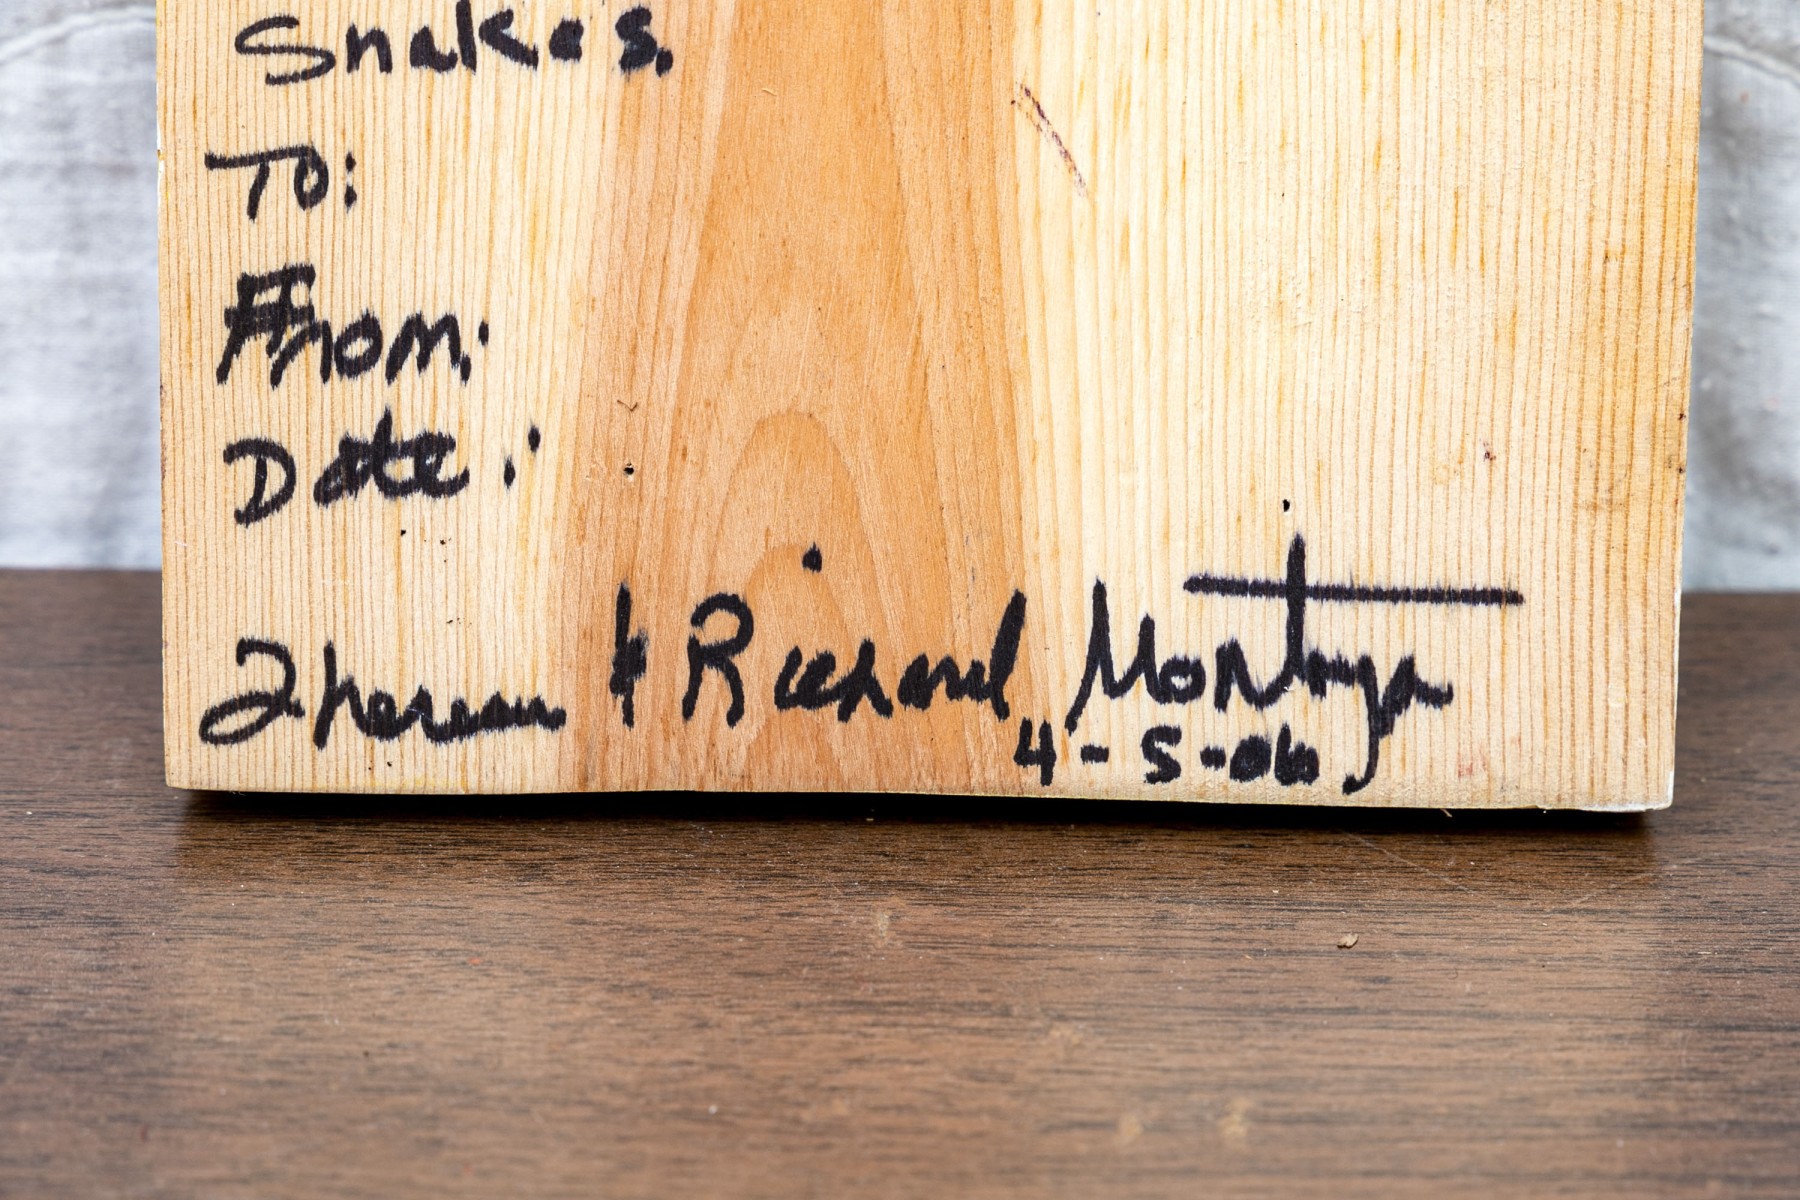 Snakes.
To:
From:
Date:
Theresa & Richard Montoya
4-5-06